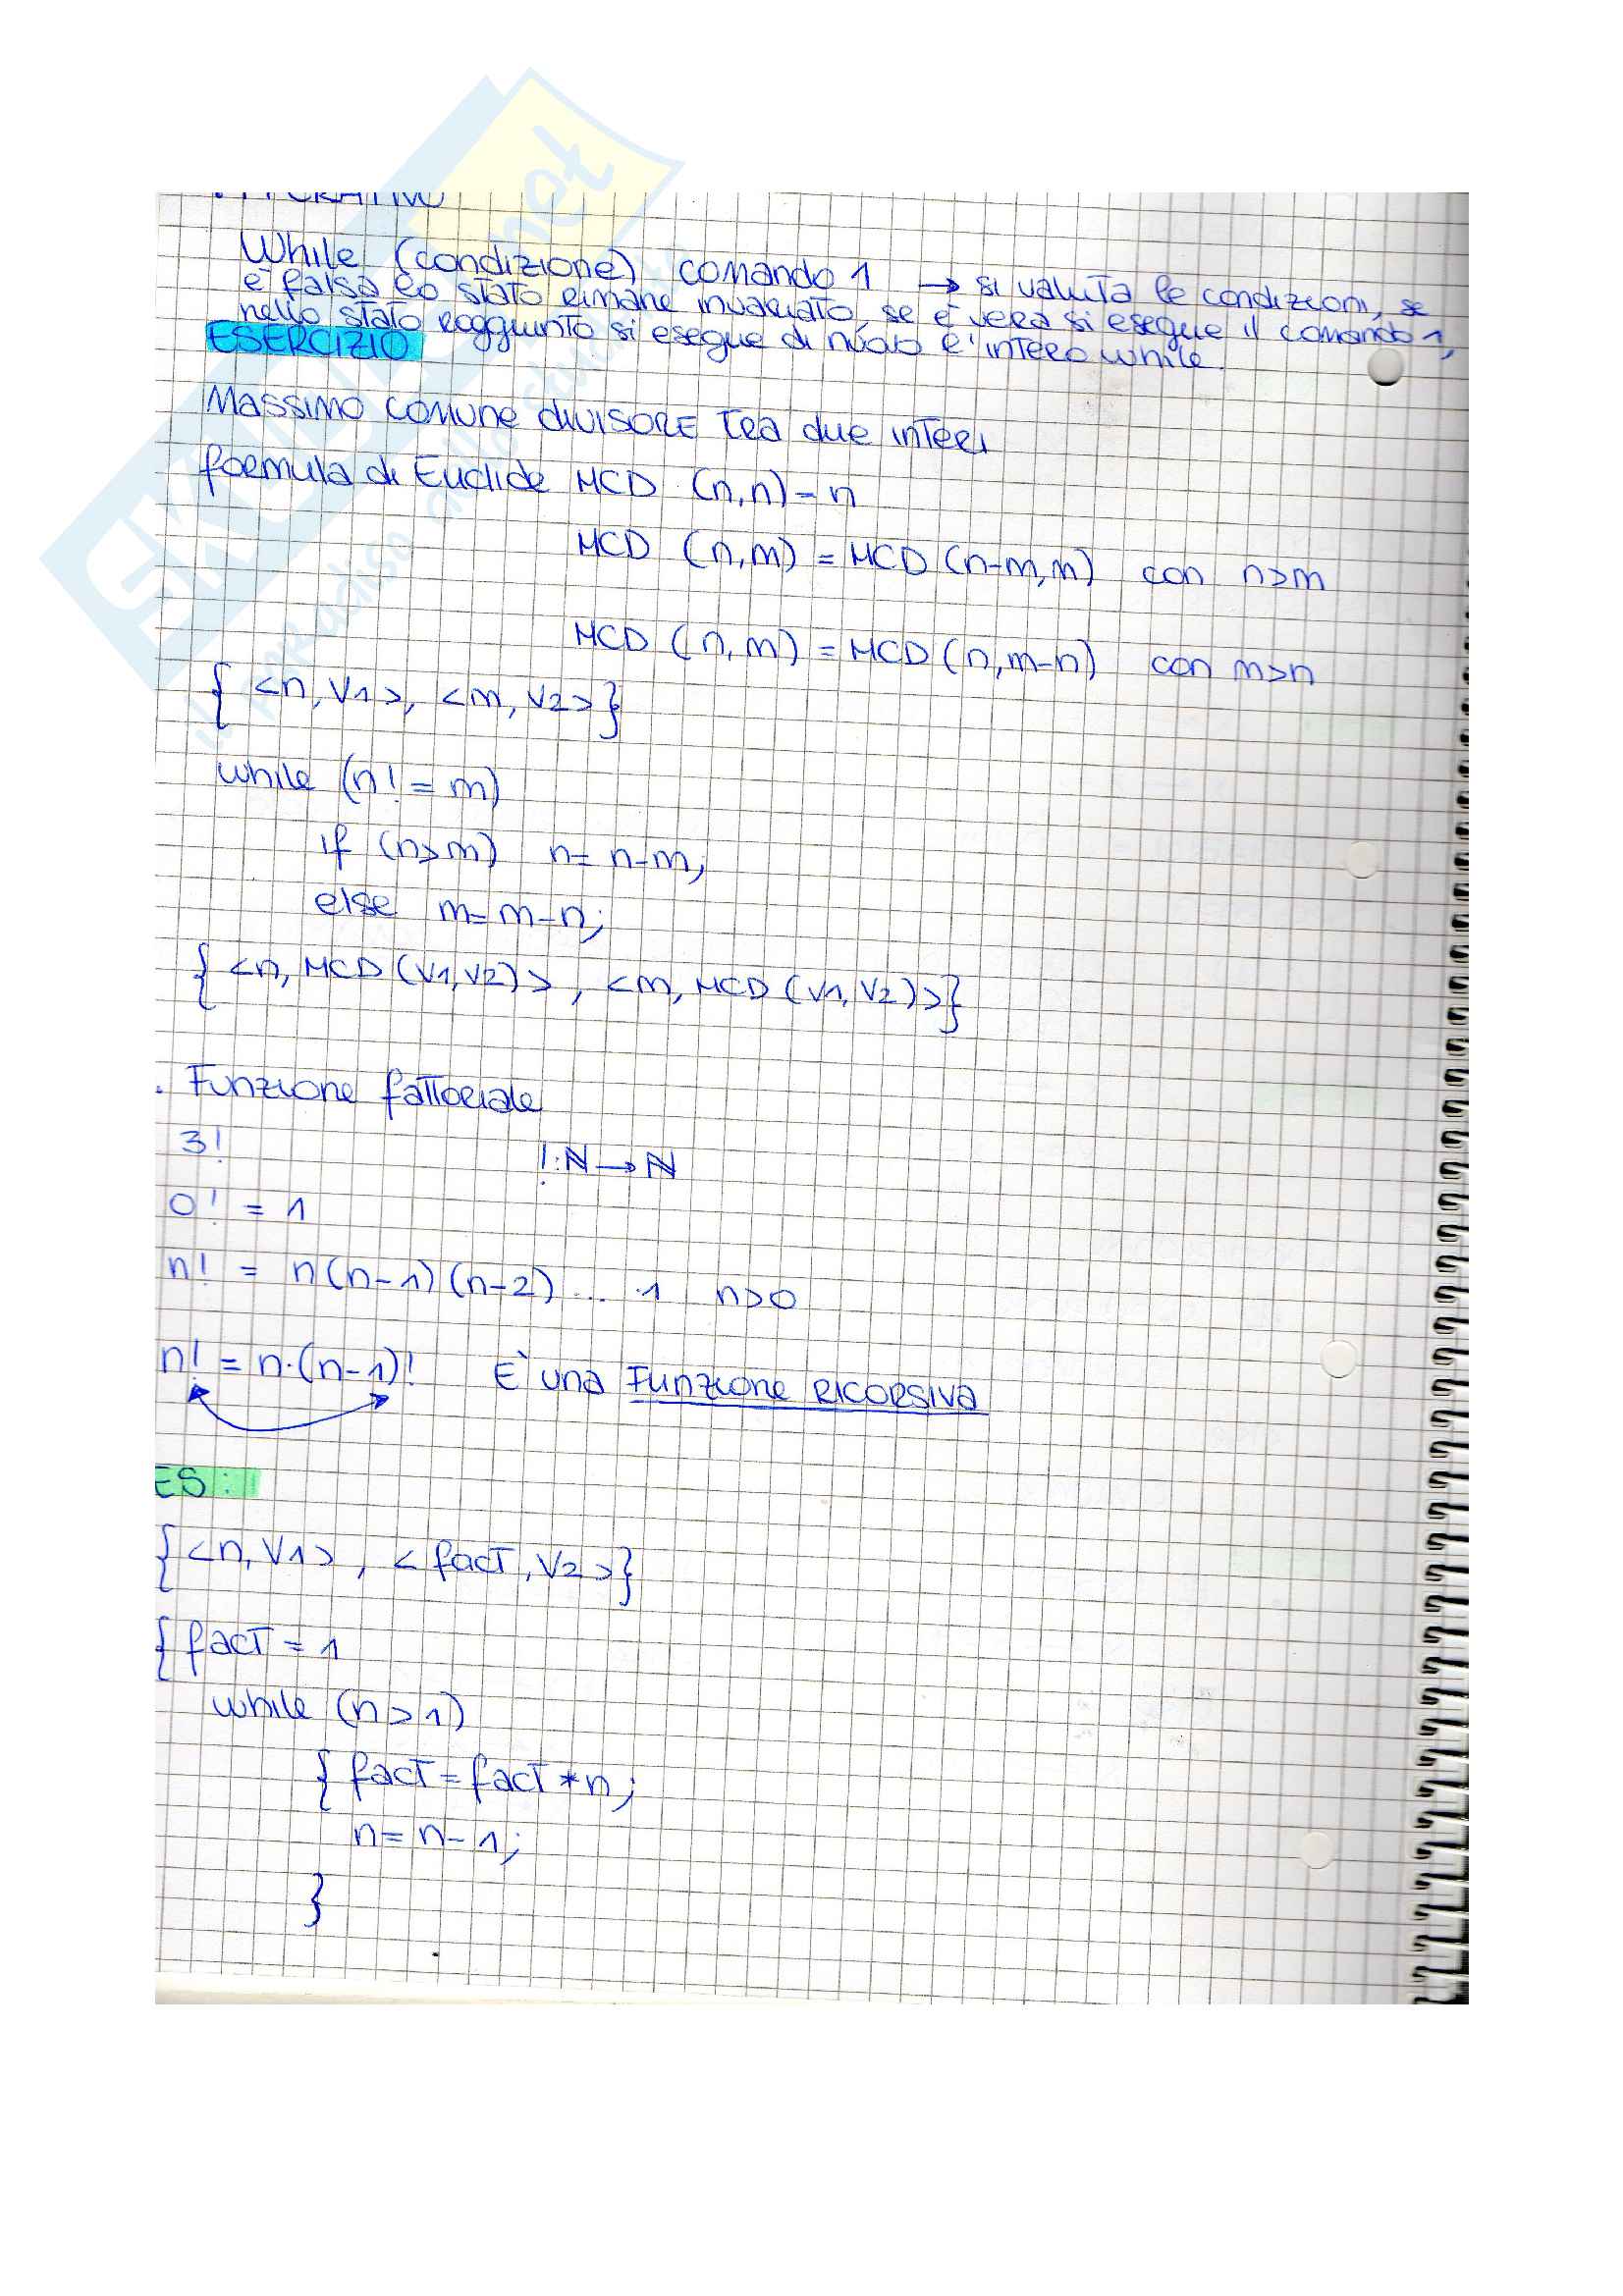 . ITERATIVO
While (condizione) comando 1 → si valuta le condizioni, se
è falsa lo stato rimane invariato, se è vera si esegue il comando 1,
nello stato raggiunto si esegue di nuovo l'intero while.
ESERCIZIO
Massimo comune divisore tra due interi
formula di Euclide MCD (n,n)=n
MCD (n,m) = MCD (n-m,m) con n>m
MCD (n,m) = MCD (n,m-n) con m>n
{ <n,V1>, <m,V2>}
while (n!=m)
if (n>m) n= n-m;
else m=m-n;
{ <n, MCD (V1,V2)>, <m, MCD (V1,V2)>}
. Funzione fattoriale
3! !:ℕ → ℕ
0! = 1
n! = n(n-1)(n-2)... 1 n>0
n! = n·(n-1)! E' una Funzione RICORSIVA
ES:
{<n,V1>, <fact,V2>}
{fact = 1
while (n>1)
{ fact = fact * n;
n = n-1;
}
SKUOLA.net
il paradiso dello studente